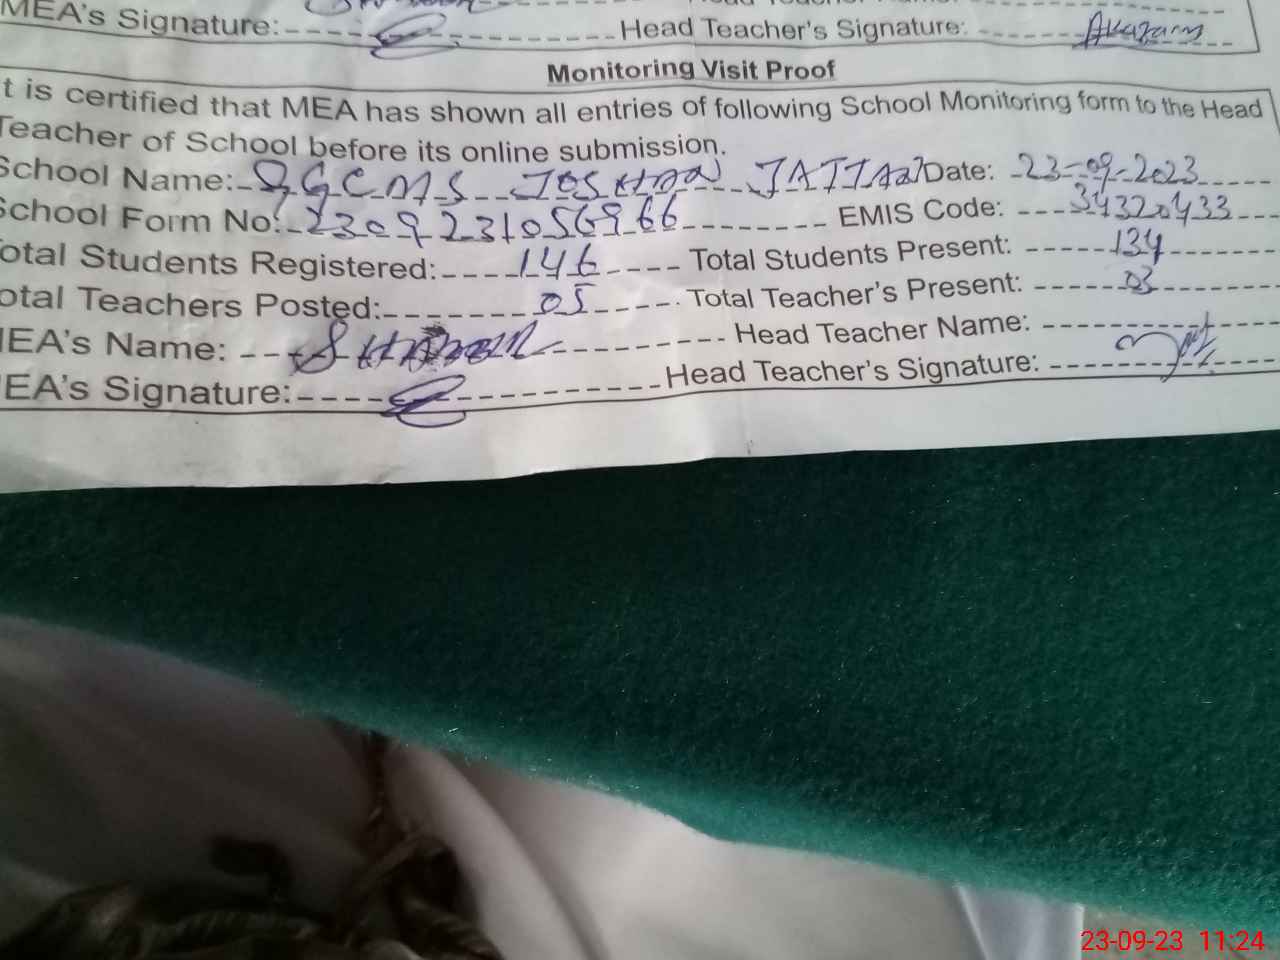 MEA's Signature: Head Teacher's Signature: Akazam
Monitoring Visit Proof
t is certified that MEA has shown all entries of following School Monitoring form to the Head
Teacher of School before its online submission.
School Name: GGCMS JATIAN Date: 23-09-2023
School Form No: 2309231056966 EMIS Code: 34320433
otal Students Registered: 146 Total Students Present: 134
otal Teachers Posted: 05 Total Teacher's Present: 03
MEA's Name: Head Teacher Name:
EA's Signature: Head Teacher's Signature:
23-09-23 11:24